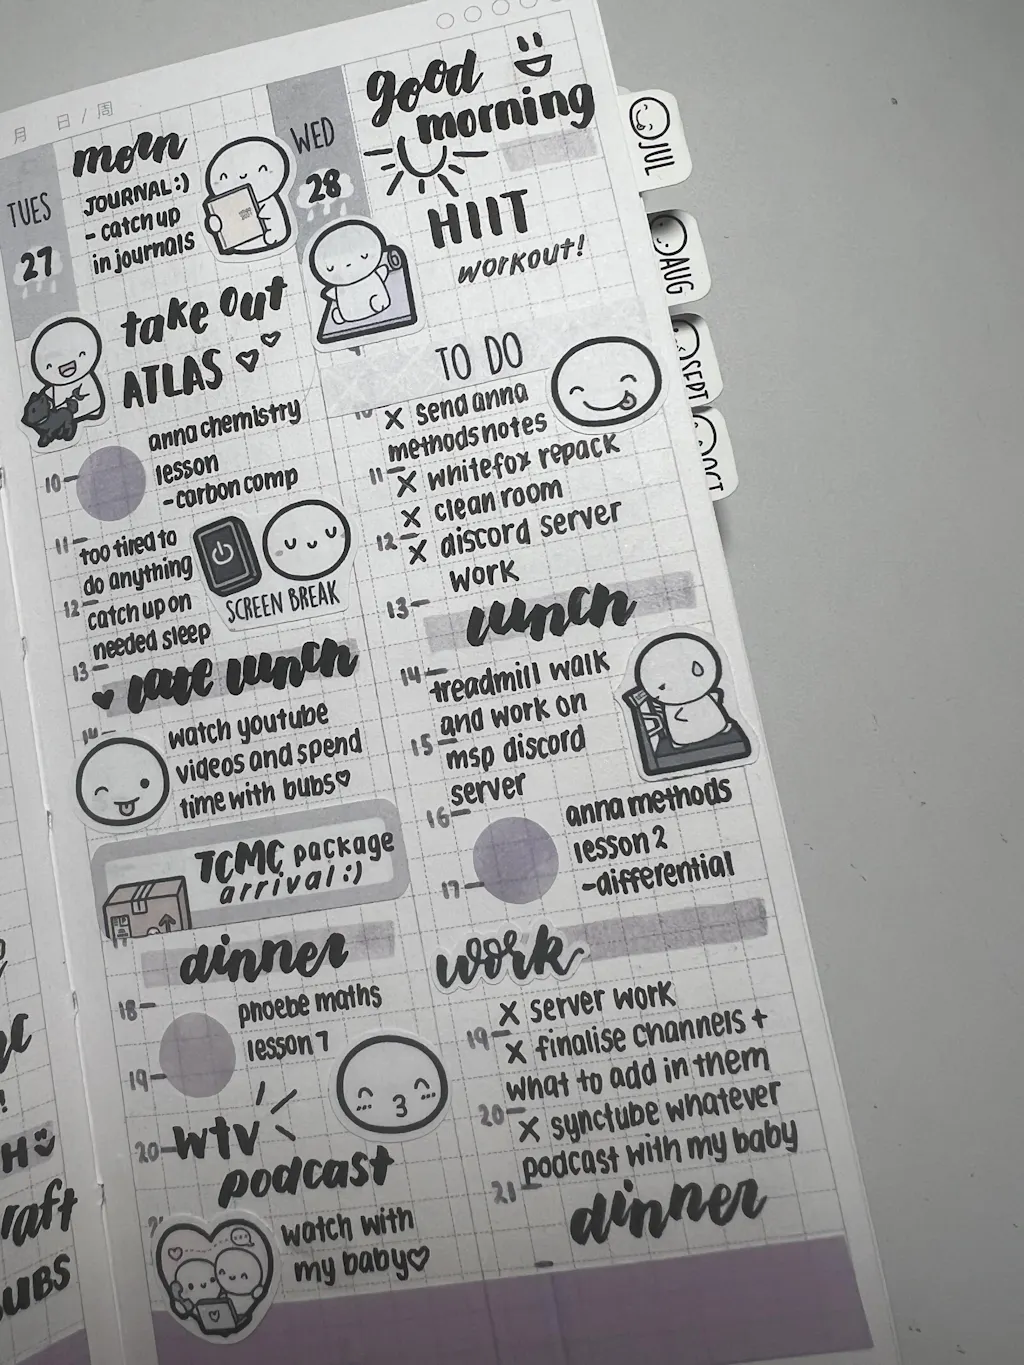 月 日/周
TUES
27
morn
JOURNAL:)
- catch up
in journals
take out
ATLAS ♡♡
anna chemistry
lesson
-carbon comp
10
11
too tired to
do anything
12
catch up on
needed sleep
SCREEN BREAK
13
♥ late lunch
14
watch youtube
videos and spend
time with bubs♡
TCMC package
arrival:)
17
dinner
18
phoebe maths
lesson 7
19
20
wtv
podcast
watch with
my baby♡
WED
28
good
morning
HIIT
workout!
6
9
TO DO
10
X send anna
methods notes
11
X whitefox repack
X clean room
12
X discord server
work
13
lunch
14
treadmill walk
and work on
15
msp discord
server
16
anna methods
lesson 2
-differential
17
work
X server work
19
X finalise channels +
what to add in them
20
X synctube whatever
podcast with my baby
21
dinner
JUL
AUG
SEPT
OCT
H
raft
BUBS